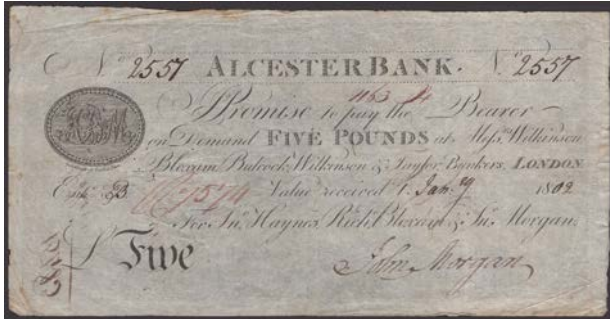 No. 2557 ALCESTER BANK. No. 2557
1163
I Promise to pay the Bearer
on Demand FIVE POUNDS at Messrs. Wilkinson
Bloxam, Bulcock, Wilkinson & Taylor, Bankers, LONDON
Entd. B Value received 1. Jan.y 1802
For Jno. Haynes, Richd. Bloxam & Jno. Morgan.
£ Five
John Morgan